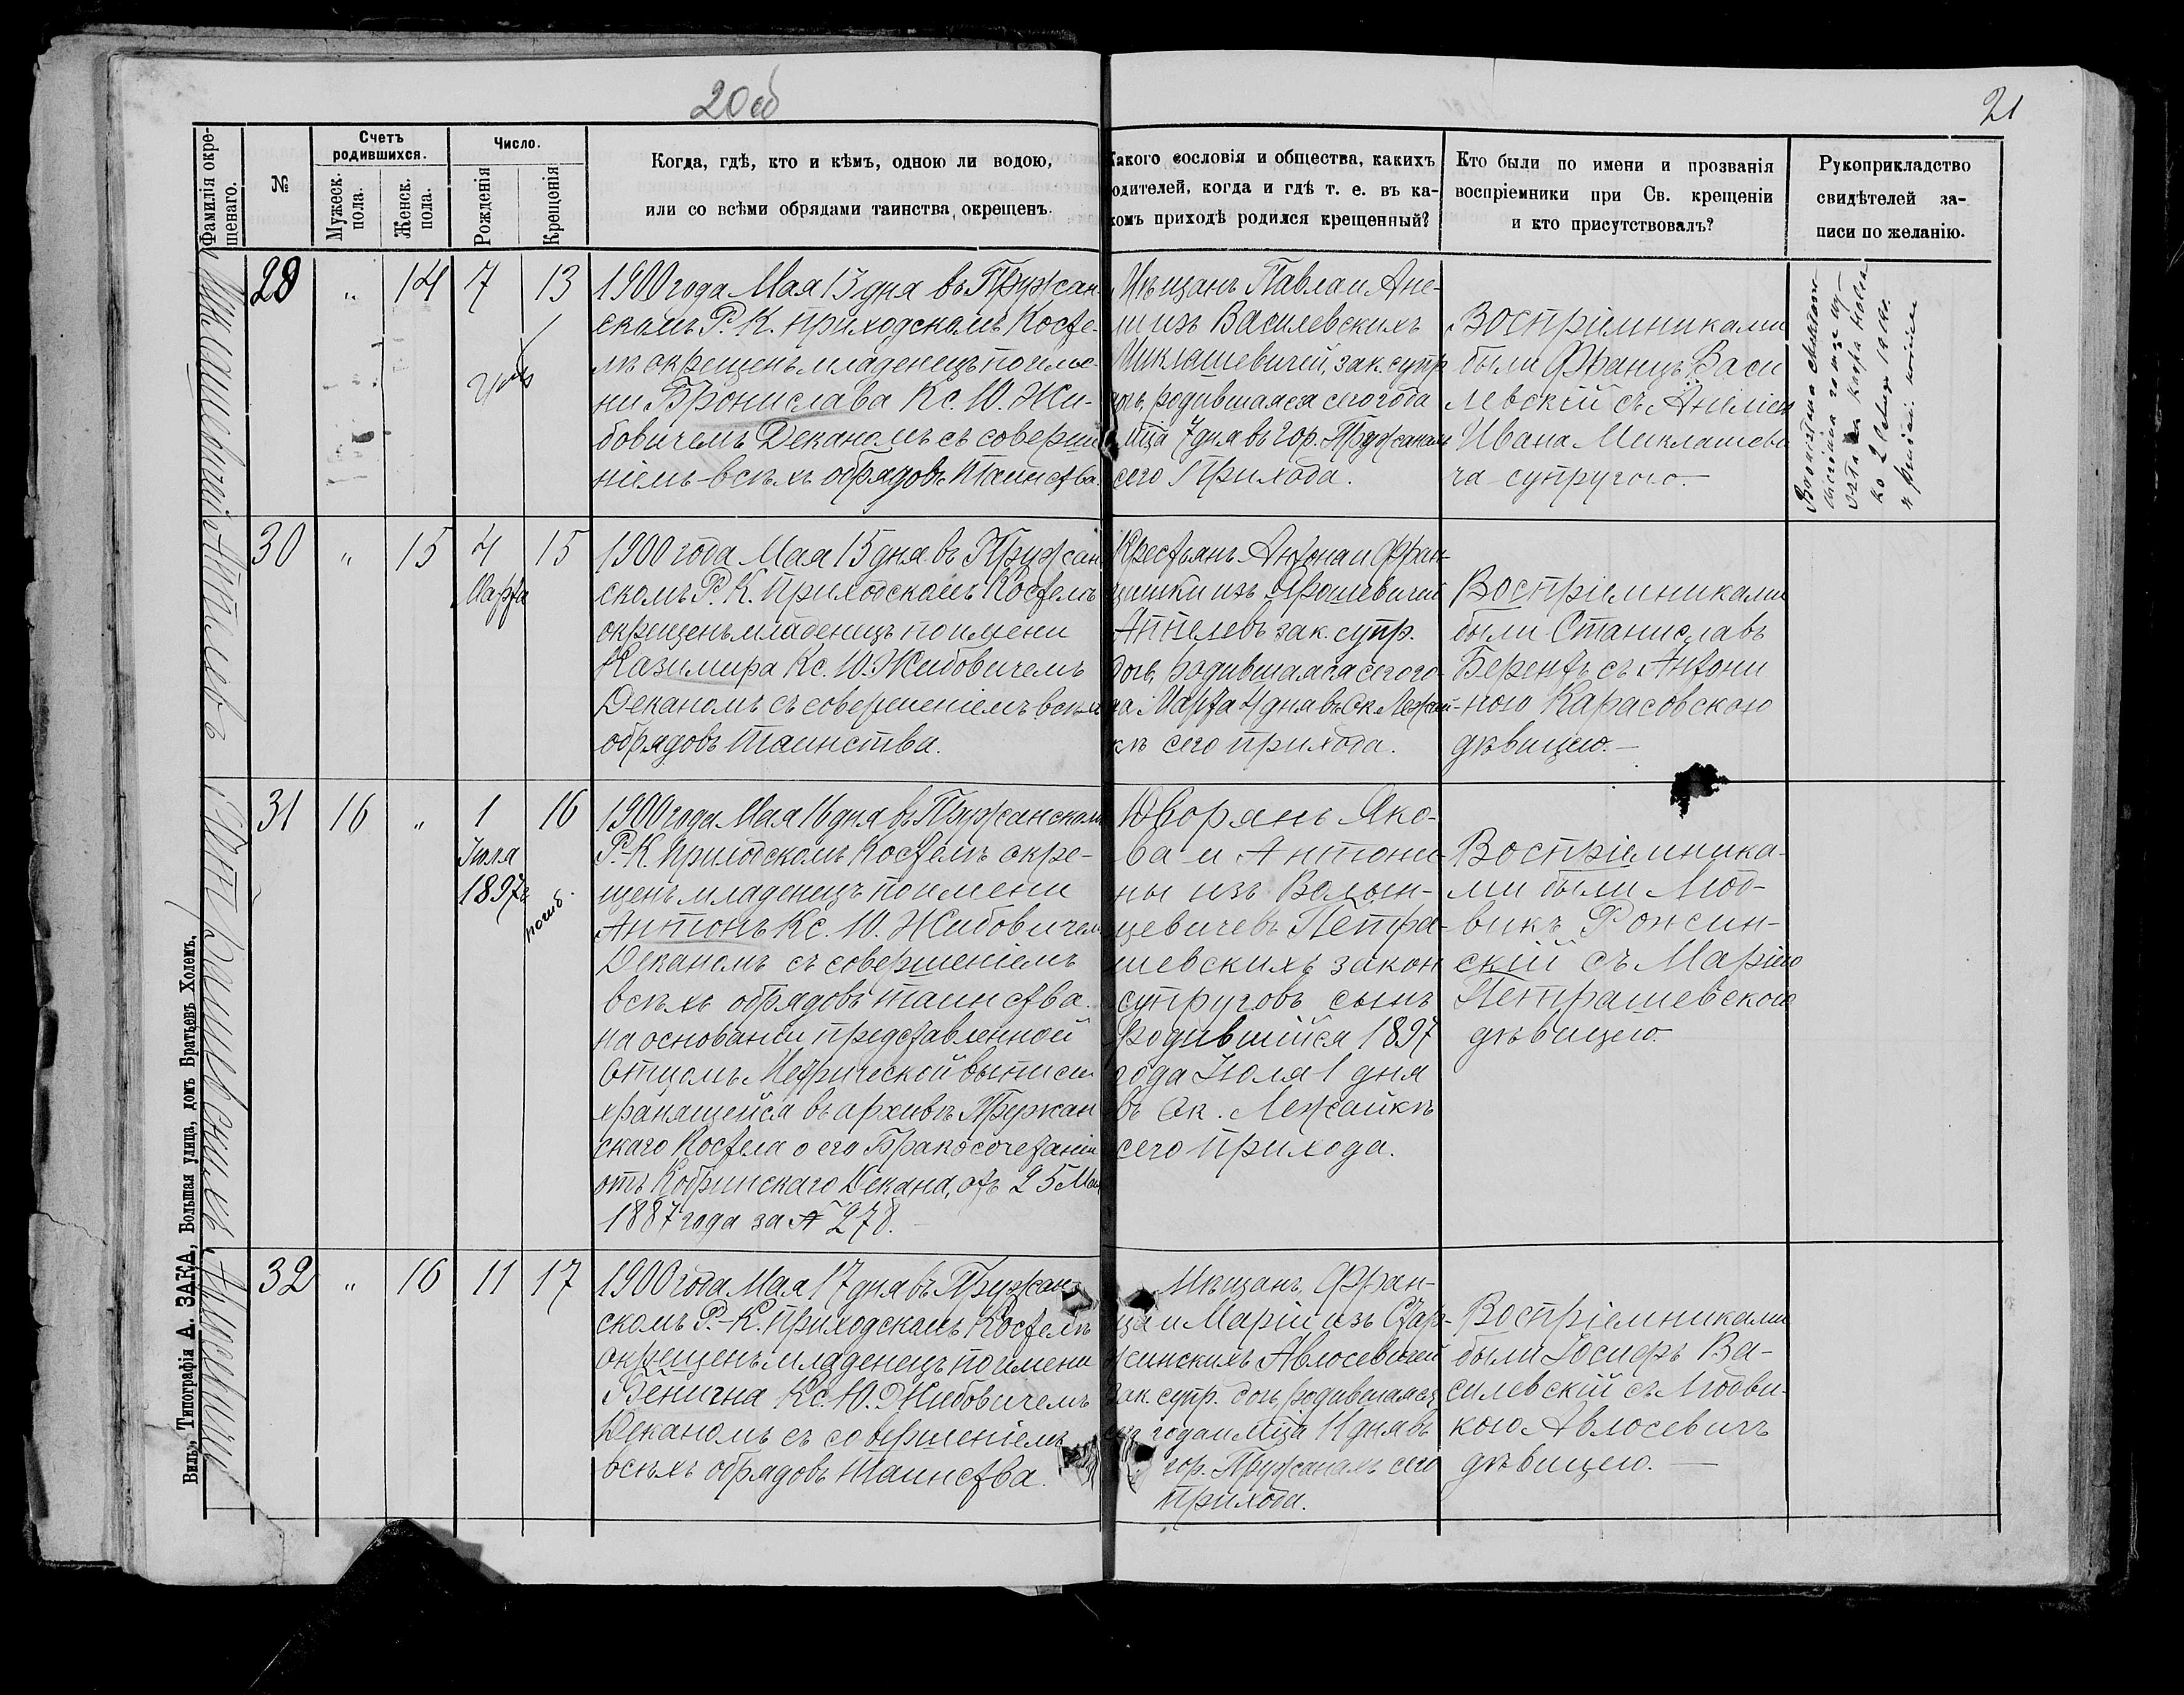 20об
21
Фамилія окре-
щенаго.
№
Счетъ
родившихся.
Мужеск.
пола.
Женск.
пола.
Число.
Рожденія
Крещенія
Когда, гдѣ, кто и кѣмъ, одною ли водою,
или со всѣми обрядами таинства, окрещенъ.
Какого сословія и общества, какихъ
родителей, когда и гдѣ т. е. въ ка-
комъ приходѣ родился крещенный?
Кто были по имени и прозванія
воспріемники при Св. крещеніи
и кто присутствовалъ?
Рукоприкладство
свидѣтелей за-
писи по желанію.
28
"
14
7
13
1900 года Мая 13 дня въ Пружан-
скомъ Р. К. приходскомъ Косте-
лѣ окрещенъ младенецъ по име-
ни Бронислава Кс. Ю. Жи-
бовичемъ Деканомъ съ соверше
ніемъ всѣхъ обрядовъ Таинства.
Мѣщанъ Павла и Ане-
ли изъ Василевскихъ
Миклашевичей, зак. супр
дочь, родившаяся сего года
и мца 7 дня въ гор. Пружанахъ
сего Прихода.
Воспріемниками
были Францъ Васи
левскій съ Анелiею
Ивана Миклашеви
ча супругою.
30
"
15
4
Марта
15
1900 года Мая 15 дня въ Пружан
скомъ Р. К. Приходскомъ Костелѣ
окрещенъ младенецъ по имени
Казимира Кс. Ю. Жибовичемъ
Деканомъ съ совершеніемъ всѣхъ
обрядовъ Таинства.
Крестьянъ Антона и Фран-
цишки изъ Ярошевичей
Аппелевъ зак. супр.
дочь, родившаяся сего го-
да Марта 4 дня въ Ок. Лежай-
кѣ сего прихода.
Воспріемниками
были Станиславъ
Берентъ съ Антони
ною Карасовскою
дѣвицею.
31
16
"
1
Іюля
1897г
16
1900 года Мая 16 дня въ Пружанскомъ
Р.-К. Приходскомъ Костелѣ окре-
щенъ младенецъ по имени
Антонъ Кс. Ю. Жибовичемъ
Деканомъ съ совершеніемъ
всѣхъ обрядовъ таинства.
на основаніи представленной
Отцомъ Метрической выписи
хранящейся въ архивѣ Пружан
скаго Костела о его Бракосочетаніи
отъ Кобринскаго Декана, отъ 25 Мая
1887 года за № 278.
Дворянъ Яко-
ва и Антони-
ны изъ Волын-
цевичевъ Петра-
шевскихъ закон
супруговъ сынъ
Родившійся 1897
года Іюля 1 дня
въ Ок. Лежайкѣ
сего прихода.
Воспріемника-
ми были Люд-
викъ Ронсин-
скій съ Маріею
Петрашевскою
дѣвицею.
32
"
16
11
17
1900 года Мая 17 дня въ Пружан-
скомъ Р.-К. Приходскомъ Костелѣ
окрещенъ младенецъ по имени
Бенигна Кс. Ю. Жибовичемъ
Деканомъ съ совершеніемъ
всѣхъ обрядовъ Таинства.
Мѣщанъ Фран-
ца и Маріи изъ Стар-
жинскихъ Авлосевичей
Зак. супр. дочь, родившаяся
сего года и мца 11 дня въ
гор. Пружанахъ сего
Прихода.
Воспріемниками
были Іосифъ Ва-
силевскій съ Людви-
кою Авлосевичъ
дѣвицею.
Аппелевъ
Петрашевскихъ
Вильн. Типографія А. ЗАКА, Большая улица, домъ Братьевъ Холемъ.